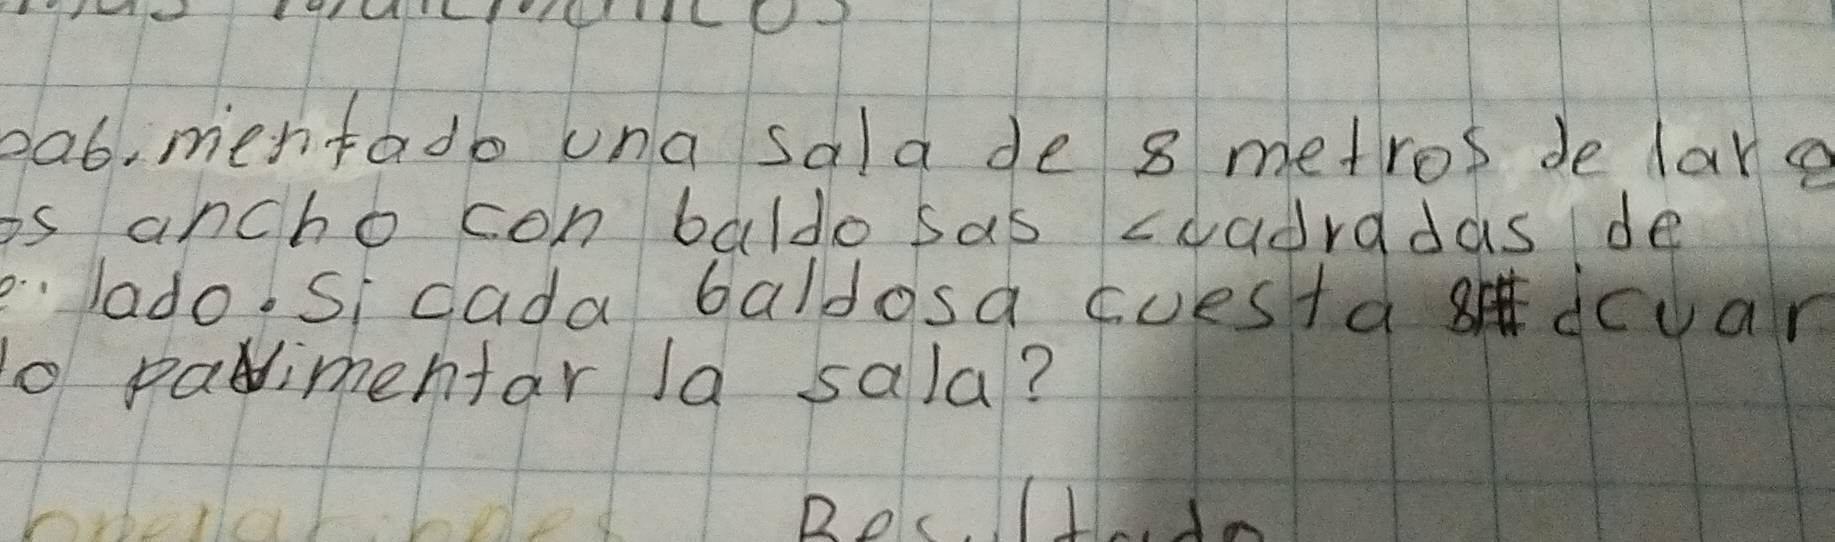 pab.mentado una sala de 8 metros de larg
os ancho con baldosas cuadradas de
lado. Si cada baldosa cuesta
lo pavimentar la sala?
operaciones Resultado